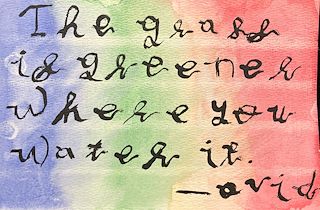 The grass
is greener
where you
water it.
— ovid